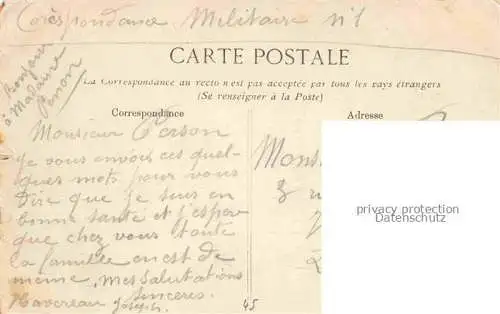 Corèspondance Militaire
Bonjour
à Madame
CARTE POSTALE
La Correspondance au recto n'est pas acceptée par tous les pays étrangers
(Se renseigner à la Poste)
Correspondance
Adresse
Monsieur
Je vous envois ces quel-
ques mots pour vous
Dire que je suis en
bonne santé et j'espère
que chez vous toute
la famille en est de
meme, mes salutations
Sinceres.
Joseph.
45
Mons
3
privacy protection
Datenschutz